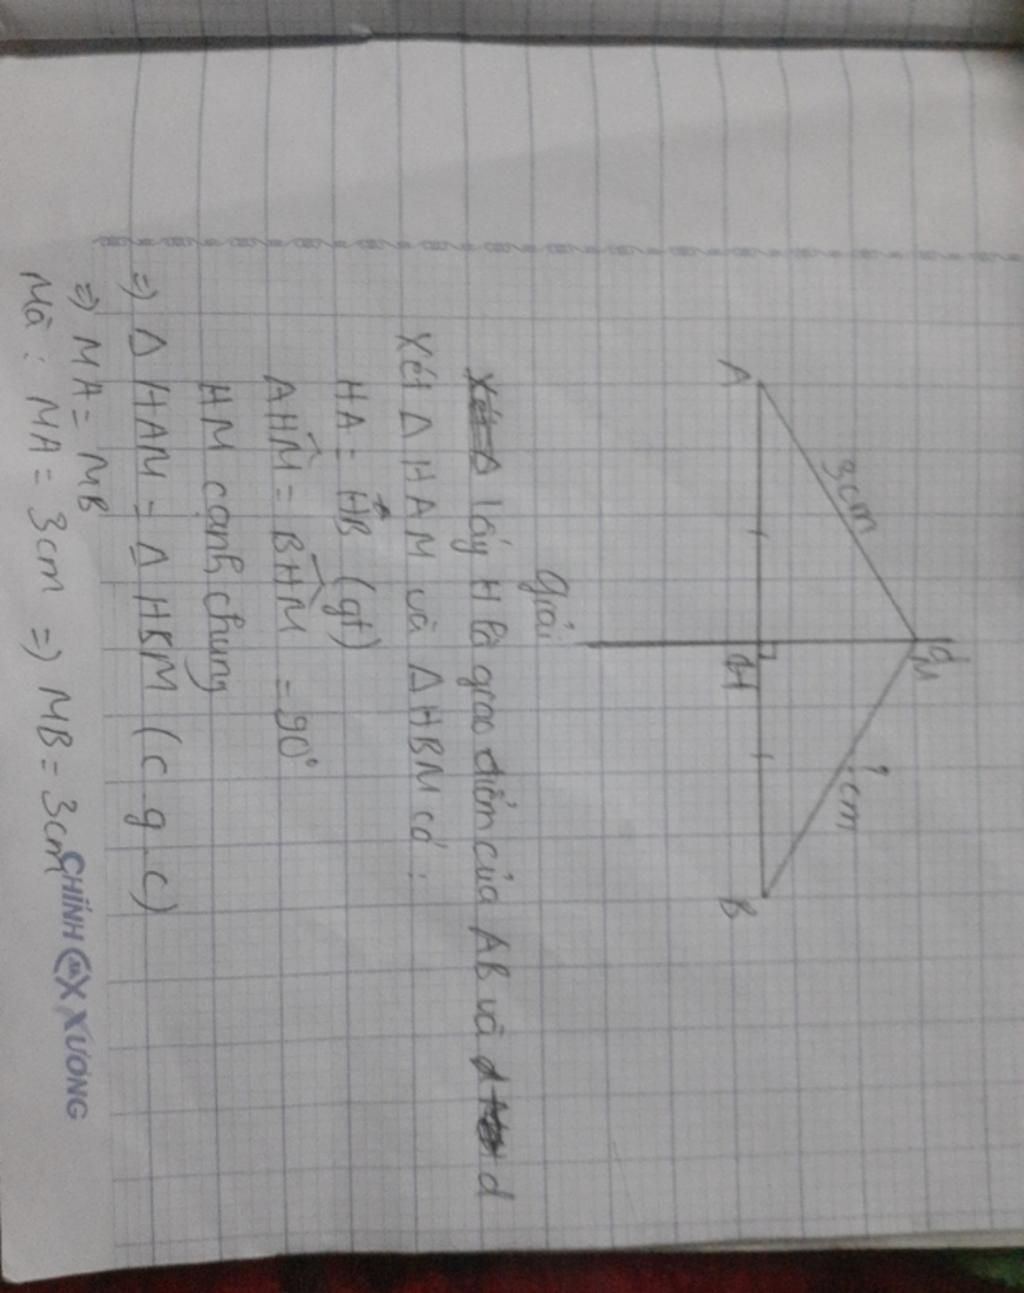 d
M
3cm
? cm
A
H
B
giải
lấy H là giao điểm của AB và d
Xét Δ HAM và Δ HBM có :
HA = HB (gt)
AHM = BHM = 90°
HM cạnh chung
=) Δ HAM = Δ HBM (c.g.c)
=) MA = MB
Mà : MA = 3cm =) MB = 3cm
CHÍNH XƯƠNG